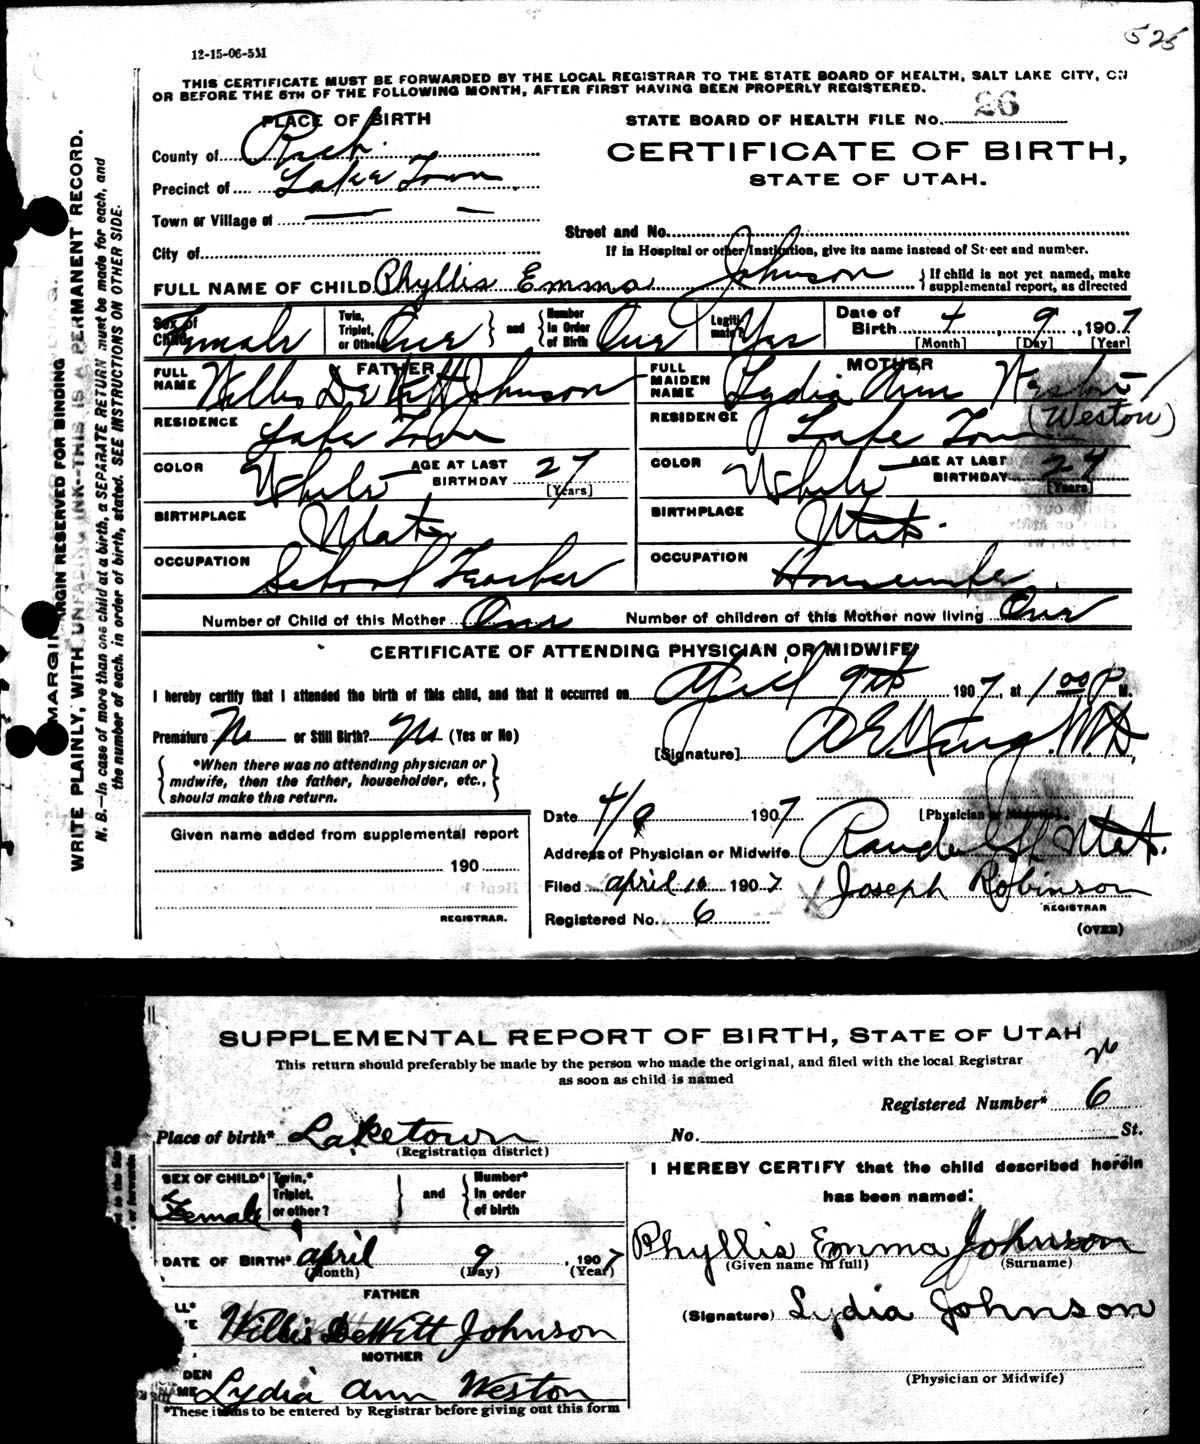 525
12-15-06-5M
THIS CERTIFICATE MUST BE FORWARDED BY THE LOCAL REGISTRAR TO THE STATE BOARD OF HEALTH, SALT LAKE CITY, ON
OR BEFORE THE 5TH OF THE FOLLOWING MONTH, AFTER FIRST HAVING BEEN PROPERLY REGISTERED.
PLACE OF BIRTH
STATE BOARD OF HEALTH FILE No. 26
County of Rich.
CERTIFICATE OF BIRTH,
STATE OF UTAH.
Precinct of Lake Town
Town or Village of
Street and No.
City of
If in Hospital or other Institution, give its name instead of Street and number.
FULL NAME OF CHILD Phyllis Emma Johnson { If child is not yet named, make supplemental report, as directed
Sex of Child Female Twin, Triplet, or Other One } and { Number In Order of Birth One Legiti mate? Yes Date of Birth 4 9, 1907
[Month] [Day] [Year]
FATHER MOTHER
FULL NAME Willis De Witt Johnson FULL MAIDEN NAME Lydia Ann
(Weston)
RESIDENCE Lake Town RESIDENCE Lake Town
COLOR White AGE AT LAST BIRTHDAY 27 [Years] COLOR White AGE AT LAST BIRTHDAY 24 [Years]
BIRTHPLACE Utah BIRTHPLACE Utah.
OCCUPATION School Teacher OCCUPATION Housewife
Number of Child of this Mother One Number of children of this Mother now living One
CERTIFICATE OF ATTENDING PHYSICIAN OR MIDWIFE
I hereby certify that I attended the birth of this child, and that it occurred on April 9th 1907, at 1 00 P M.
Premature No or Still Birth? No (Yes or No)
[Signature]
{ *When there was no attending physician or midwife, then the father, householder, etc., should make this return. }
[Physician or Midwife]
Date 4/9 1907
Address of Physician or Midwife Randolph Utah.
Filed April 10 1907 Joseph Robinson
REGISTRAR
Registered No. 6
(OVER)
Given name added from supplemental report
190
REGISTRAR.
MARGIN RESERVED FOR BINDING
WRITE PLAINLY, WITH UNFADING INK—THIS IS A PERMANENT RECORD.
N. B.—In case of more than one child at a birth, a SEPARATE RETURN must be made for each, and
the number of each, in order of birth, stated. SEE INSTRUCTIONS ON OTHER SIDE.
SUPPLEMENTAL REPORT OF BIRTH, STATE OF UTAH
26
This return should preferably be made by the person who made the original, and filed with the local Registrar
as soon as child is named
Registered Number* 6
Place of birth* Laketown No. St.
(Registration district)
SEX OF CHILD* Female Twin,* Triplet, or other? } and { Number* In order of birth
DATE OF BIRTH* April 9, 1907
(Month) (Day) (Year)
FATHER
Willis DeWitt Johnson
MOTHER
DEN
ME Lydia Ann Weston
*These items to be entered by Registrar before giving out this form
I HEREBY CERTIFY that the child described herein
has been named:
Phyllis Emma Johnson
(Given name in full) (Surname)
(Signature) Lydia Johnson
(Physician or Midwife)